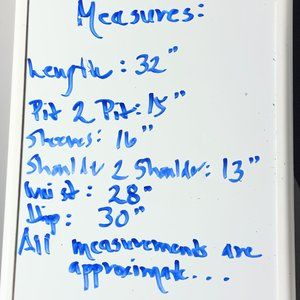 Measures:
Length: 32"
Pit 2 Pit: 15"
Sleeves: 16"
Shoulder 2 Shoulder: 13"
Waist: 28"
Hip: 30"
All measurements are
approximate...